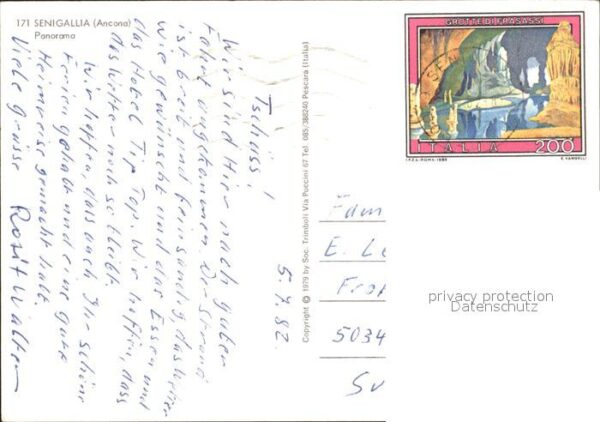 171 SENIGALLIA (Ancona)
Panorama
Tschüss!
5.7.82
Wir sind Hier nach guter
Fahrt angekommen. Der Strand
ist breit und feinsandig, das Wetter
wie gewünscht und das Essen und
das Hotel Tip Top. Wir hoffen, dass
das Wetter noch so bleibt.
Wir hoffen, dass auch Ihr schöne
Ferien gehabt und eine gute
Heimreise gemacht habt.
Viele grüsse
Copyright © 1979 by Soc. Trimboli Via Puccini 67 Tel. 085/388246 Pescara (Italia)
GROTTE DI FRASASSI
ITALIA 200
Fam
E. Le
5034
Su
privacy protection
Datenschutz